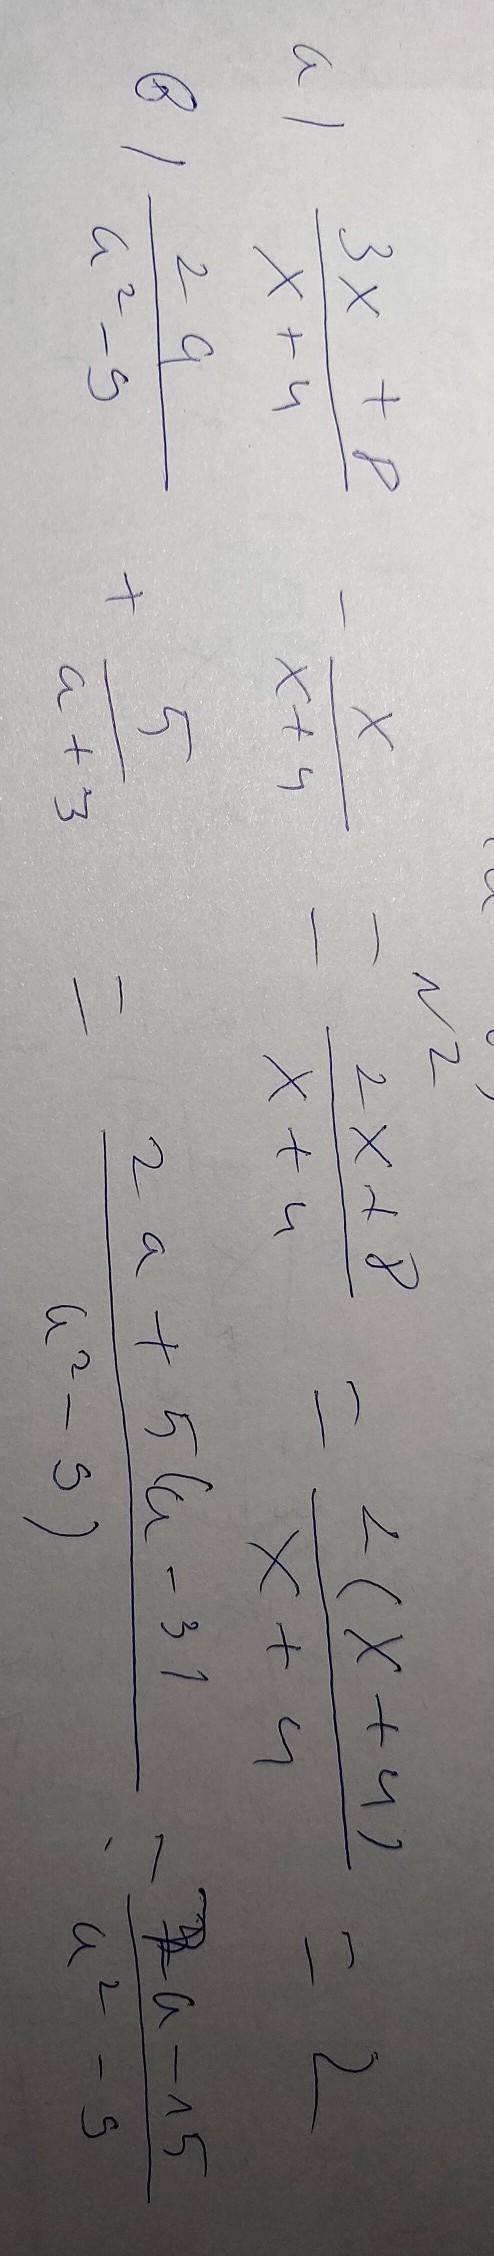 N2
а) (3x + 8)/(x + 4) - x/(x + 4) = (2x + 8)/(x + 4) = 2(x + 4)/(x + 4) = 2
б) 2a/(a² - 9) + 5/(a + 3) = (2a + 5(a - 3))/(a² - 9) = (7a - 15)/(a² - 9)